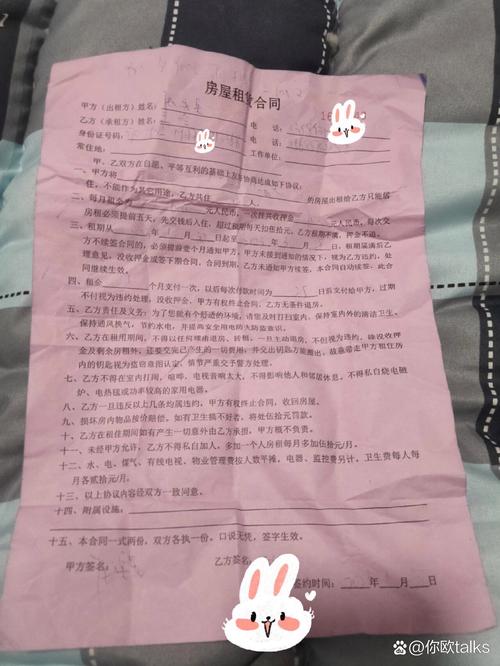 房屋租赁合同
甲方（出租方）姓名： 电话：
乙方（承租方）姓名： 电话：
身份证号码： 工作单位：
常住地：
甲、乙双方在自愿、平等互利的基础上友好协商达成如下协议：
一、甲方将 的房屋出租给乙方只能居
住，不能作为其它用途，乙方共住 人．
二、每月租金为 元人民币，一次性共收押金 元人民币，每次交
房租必须提前五天，先交钱后入住，超过租期每天扣伍拾元，乙方租期不满，押金不退。
三、租期从 年 月 日起至 年 月 日，租期届满后乙
方不续签合同的，必须提前壹个月通知甲方，甲方未接到通知的情况下，视为乙方违约，处
理意见，没收押金，或签下期合同，合同到期，乙方未通知甲方续签，本合同自动续签，此合
同继续生效。
四、租金 个月支付一次，以后每次付款时间为 25 日前支付给甲方，过期
不付视为违约处理，没收押金，甲方有权终止合同，乙方无条件退房。
五、乙方责任及义务：为了您能有个舒适的环境，请您及时打扫室内、保持室内外的清洁卫生、
保持通风换气，节约水电，并提高安全用电防火防盗意识。
六、乙方在租用期间，不得以任何理由退房、转租，一旦主动退房，不但视为违约，除没收押
金及剩余房租外，还要交完已产生的一切费用，并交出钥匙方能搬出，故意带走甲方租住房
内的钥匙视为盗窃意图认定，情节严重交予警方处理。
七、乙方不得在室内打闹，喧哗，电视音响太大，不得影响他人和邻居休息，不得私自烧电磁
炉、电热毯或功率较高的家用电器。
八、乙方一旦违反以上几条均属违约，甲方有权终止合同，收回房屋。
九、损坏房内物品按价赔偿，如有卫生搞不好者，将处伍拾元罚款。
十、乙方在租住期间如有产生一切意外由乙方承担，甲方概不负责。
十一、未经甲方允许，乙方不得私自加人，多加一个人房租每月多加伍拾元/月。
十二、水、电、煤气、有线电视、物业管理费按人数平摊，电器、监控费另计，卫生费每人每
月各贰拾元/月。
十三、以上协议内容经双方一致同意。
十四、附属设施：
十五、本合同一式两份，双方各执一份，口说无凭，签字生效。
甲方签名： 乙方签名：
签约时间： 年 月 日
@你欧talks